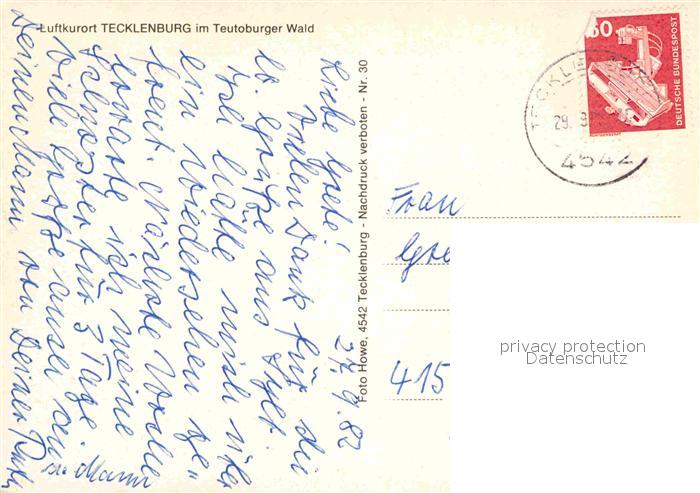 Luftkurort TECKLENBURG im Teutoburger Wald
27.9.82
Liebe Grete!
Vielen Dank für die
lb. Grüße aus Sylt.
Ich hätte mich über
ein Wiedersehen ge-
freut. Nächste Woche
erwarte ich meine
Schwester für 3 Tage.
Viele Grüße auch an
Deinen Mann von Deiner
Mann
Foto Howe, 4542 Tecklenburg - Nachdruck verboten - Nr. 30
Frau
Gre
415
60
DEUTSCHE BUNDESPOST
TECKLENBURG
29. 9.
4542
privacy protection
Datenschutz